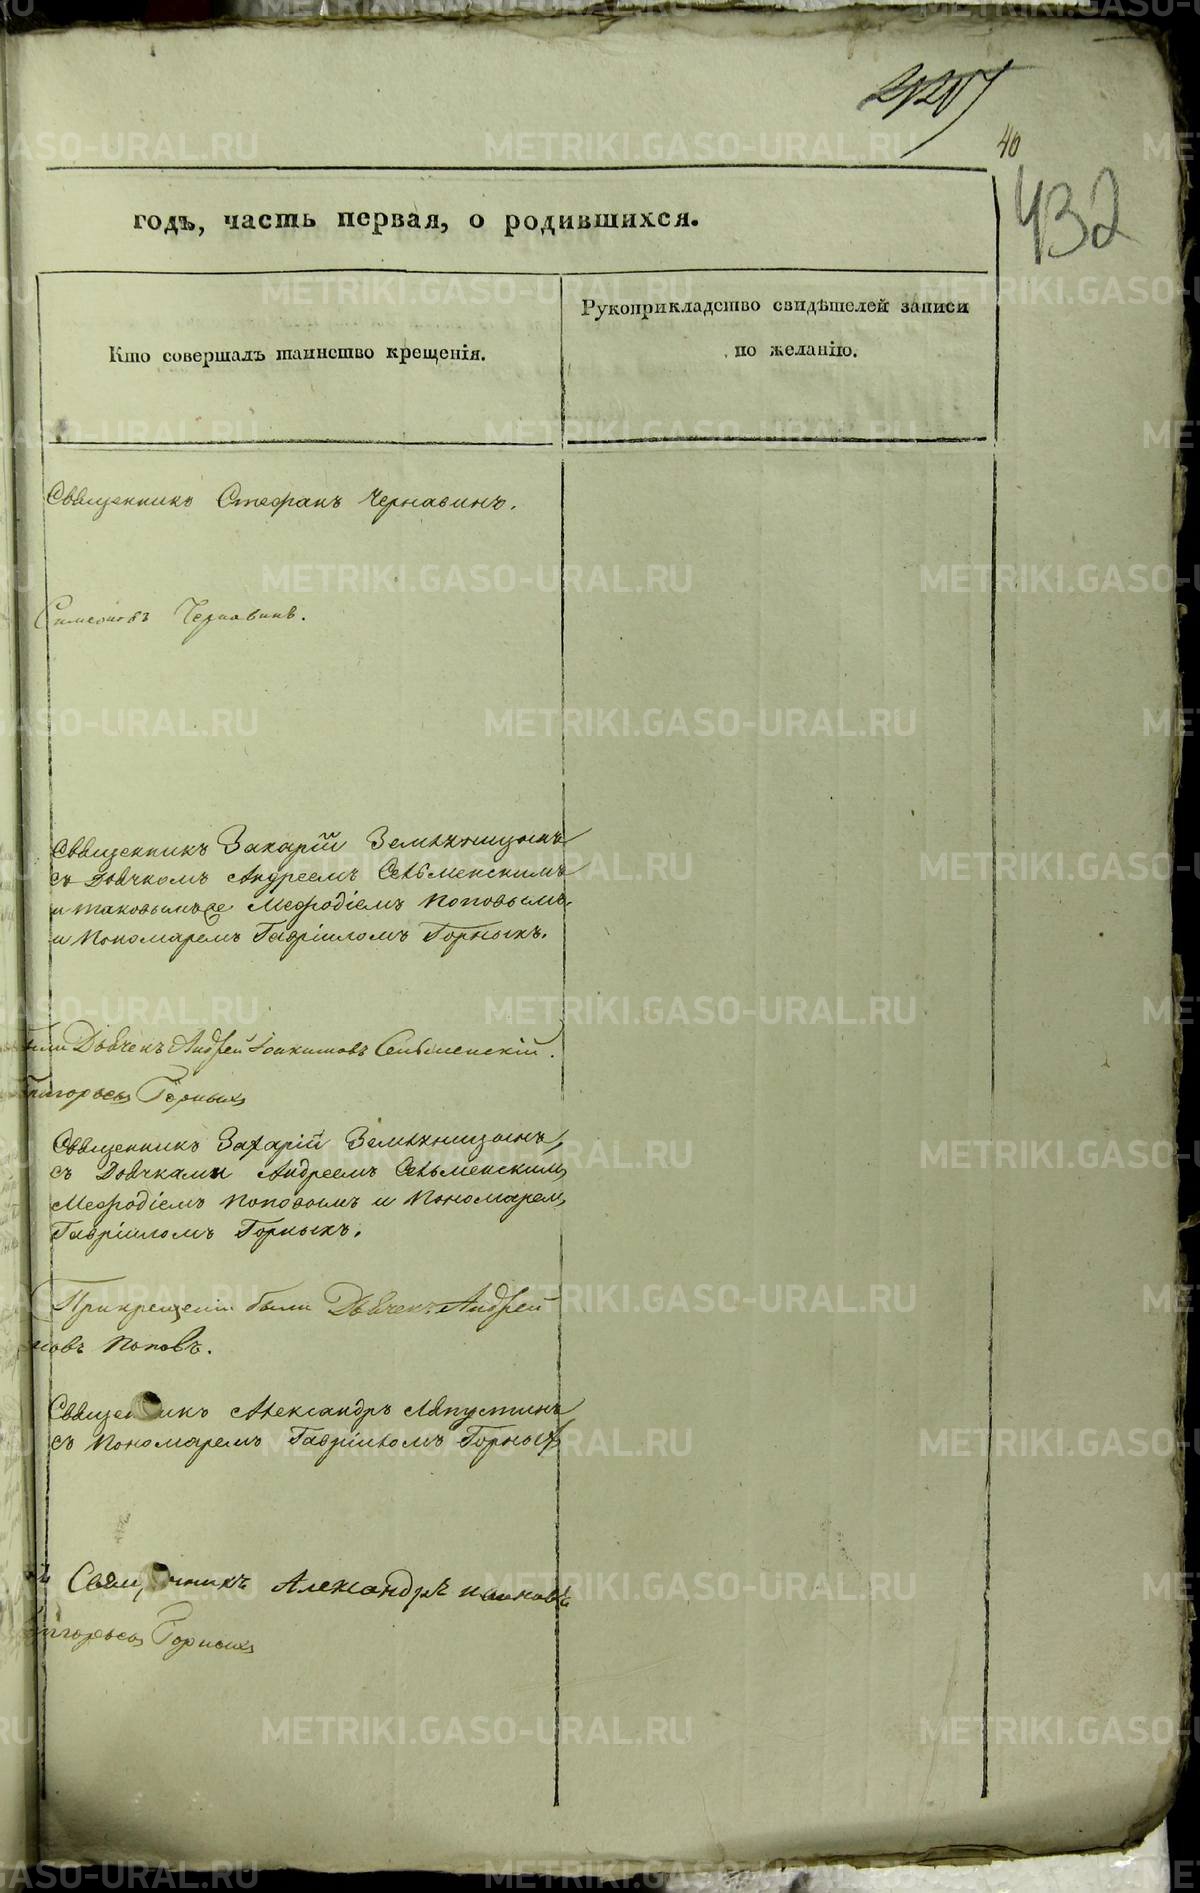 40
432
годъ, часть первая, о родившихся.
Кто совершалъ таинство крещенія.
Рукоприкладство свидѣтелей записи
по желанію.
Священникъ Стефанъ Чернавинъ.
Симеоновъ Чернавинъ.
Священникъ Захарій Земляницынъ
съ Дьячкомъ Андреемъ Сельменскимъ
и таковымъже Меѳодіемъ Поповымъ,
и Пономаремъ Гавріиломъ Горныхъ.
были Дьячекъ Андрей Іоакимовъ Сельменскій.
Григорьевъ Горныхъ
Священникъ Захарій Земляницынъ,
съ Дьячками Андреемъ Сельменскимъ,
Меѳодіемъ Поповымъ и Пономаремъ
Гавріиломъ Горныхъ.
При крещеніи были Дьячекъ Андрей
новъ Поповъ.
Священникъ Александръ Ляпустинъ
съ Пономаремъ Гавріиломъ Горныхъ
Священникъ Александръ
Григорьевъ Горныхъ
METRIKI.GASO-URAL.RU